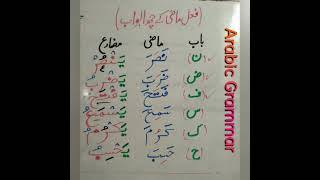 (فعل ماضی کے چھ ابواب)
باب ماضی مضارع
(ن) نَصَرَ يَنْصُرُ
(ض) ضَرَبَ يَضْرِبُ
(ف) فَتَحَ يَفْتَحُ
(س) سَمِعَ يَسْمَعُ
(ک) كَرُمَ يَكْرُمُ
(ح) حَسِبَ يَحْسِبُ
Arabic Grammar